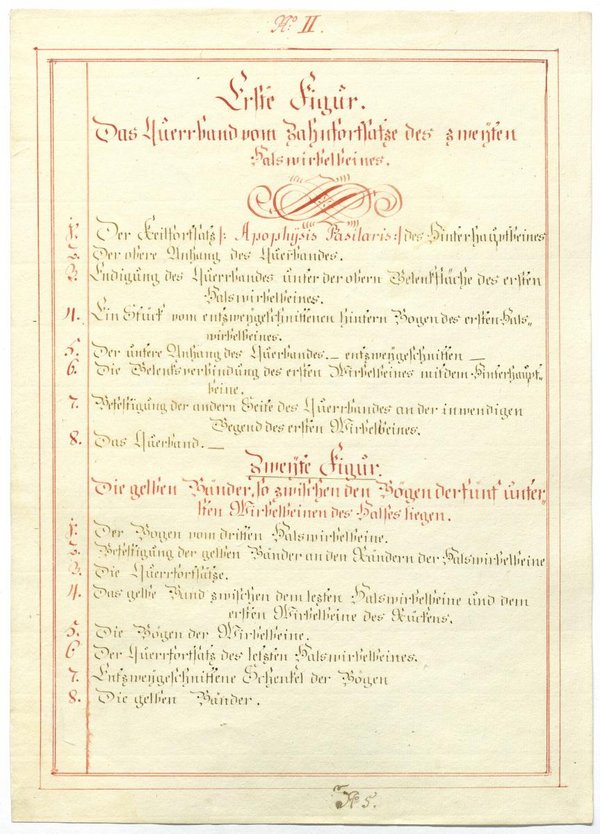 No. II.
Erste Figur.
Das Querrband vom Zahnfortsatze des zweyten
Halswirbelbeines.
1. Der Keilfortsatz |: Apophÿsis Basilaris :| des Hinterhauptbeines
2. Der obere Anhang des Querbandes.
3. Endigung des Querrbandes unter der obern Gelenkfläche des ersten
Halswirbelbeines.
4. Ein Stück vom entzweÿgeschnittenen hintern Bogen des ersten Hals„
wirbelbeines.
5. Der untere Anhang des Querbandes. – entzweÿgeschnitten –
6. Die Gelenksverbindung des ersten Wirbelbeines mit dem Hinterhaupt„
beine.
7. Befestigung der andern Seite des Querrbandes an der inwendigen
Gegend des ersten Wirbelbeines.
8. Das Querband. –
Zweyte Figur.
Die gelben Bänder, so zwischen den Bögen der fünf unter„
sten Wirbelbeinen des Halses liegen.
1. Der Bogen vom dritten Halswirbelbeine.
2. Befestigung der gelben Bänder an den Rändern der Halswirbelbeine
3. Die Querrfortsätze.
4. Das gelbe Band zwischen dem letzten Halswirbelbeine und dem
ersten Wirbelbeine des Rückens.
5. Die Bögen der Wirbelbeine.
6 Der Querrfortsatz des letzten Halswirbelbeines.
7. Entzweygeschnittene Schenkel der Bögen
8. Die gelben Bänder.
No 5.